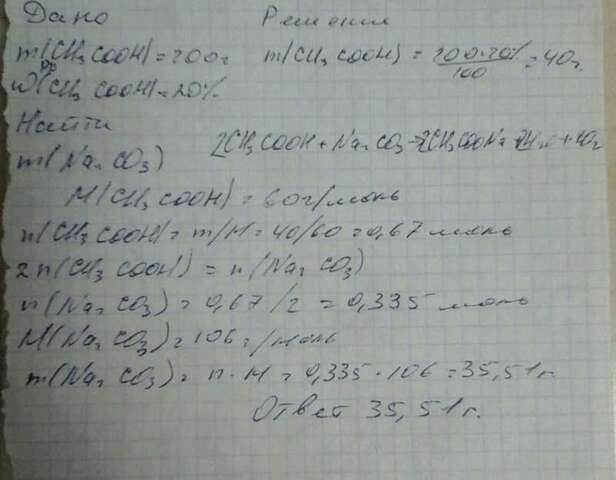 Дано Решение
m(CH₃COOH)=200г m(CH₃COOH) = 200·20%/100 = 40г.
W(CH₃COOH)=20%
Найти
m(Na₂CO₃) 2CH₃COOH + Na₂CO₃→2CH₃COONa + H₂O + CO₂
M(CH₃COOH) = 60г/моль
n(CH₃COOH)= m/M = 40/60 = 0,67 моль
2n(CH₃COOH) = n(Na₂CO₃)
n(Na₂CO₃) = 0,67/2 = 0,335 моль
M(Na₂CO₃)=106г/моль
m(Na₂CO₃)= n·M = 0,335·106 = 35,51г.
Ответ 35,51г.